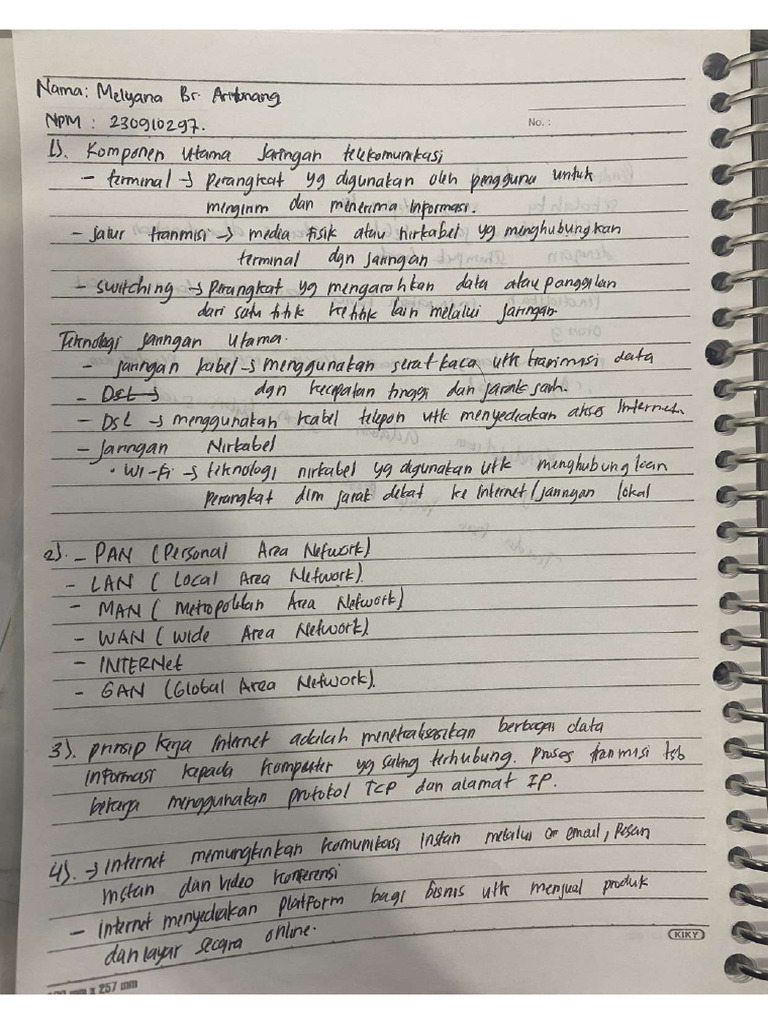 Nama: Melyana Br. Aritonang
NPM : 230910297.
No. :
1). Komponen utama Jaringan telekomunikasi
- terminal → Perangkat yg digunakan oleh pengguna untuk
mengirim dan menerima informasi.
- jalur tranmisi → media fisik atau nirkabel yg menghubungkan
terminal dgn jaringan
- switching → Perangkat yg mengarahkan data atau panggilan
dari satu titik ke titik lain melalui jaringan.
Teknologi jaringan utama.
- jaringan kabel → menggunakan serat kaca utk tranmisi data
- DSL → dgn kecepatan tinggi dan jarak jauh.
- DSL → menggunakan kabel telepon utk menyediakan akses Internet.
- Jaringan Nirkabel
• Wi-Fi → teknologi nirkabel yg digunakan utk menghubungkan
perangkat dlm jarak dekat ke Internet/jaringan lokal
2). - PAN (Personal Area Network)
- LAN ( Local Area Network).
- MAN ( Metropolitan Area Network)
- WAN ( Wide Area Network).
- INTERNet
- GAN (Global Area Network).
3). prinsip kerja Internet adalah berbagai data
informasi kepada komputer yg saling terhubung. Proses tranmisi tsb
bekerja menggunakan protokol TCP dan alamat IP.
4). → Internet memungkinkan komunikasi Instan melalui email, Pesan
Instan dan video konferensi
- internet menyediakan platform bagi bisnis utk menjual produk
dan layar secara online.
KIKY
x 257 mm